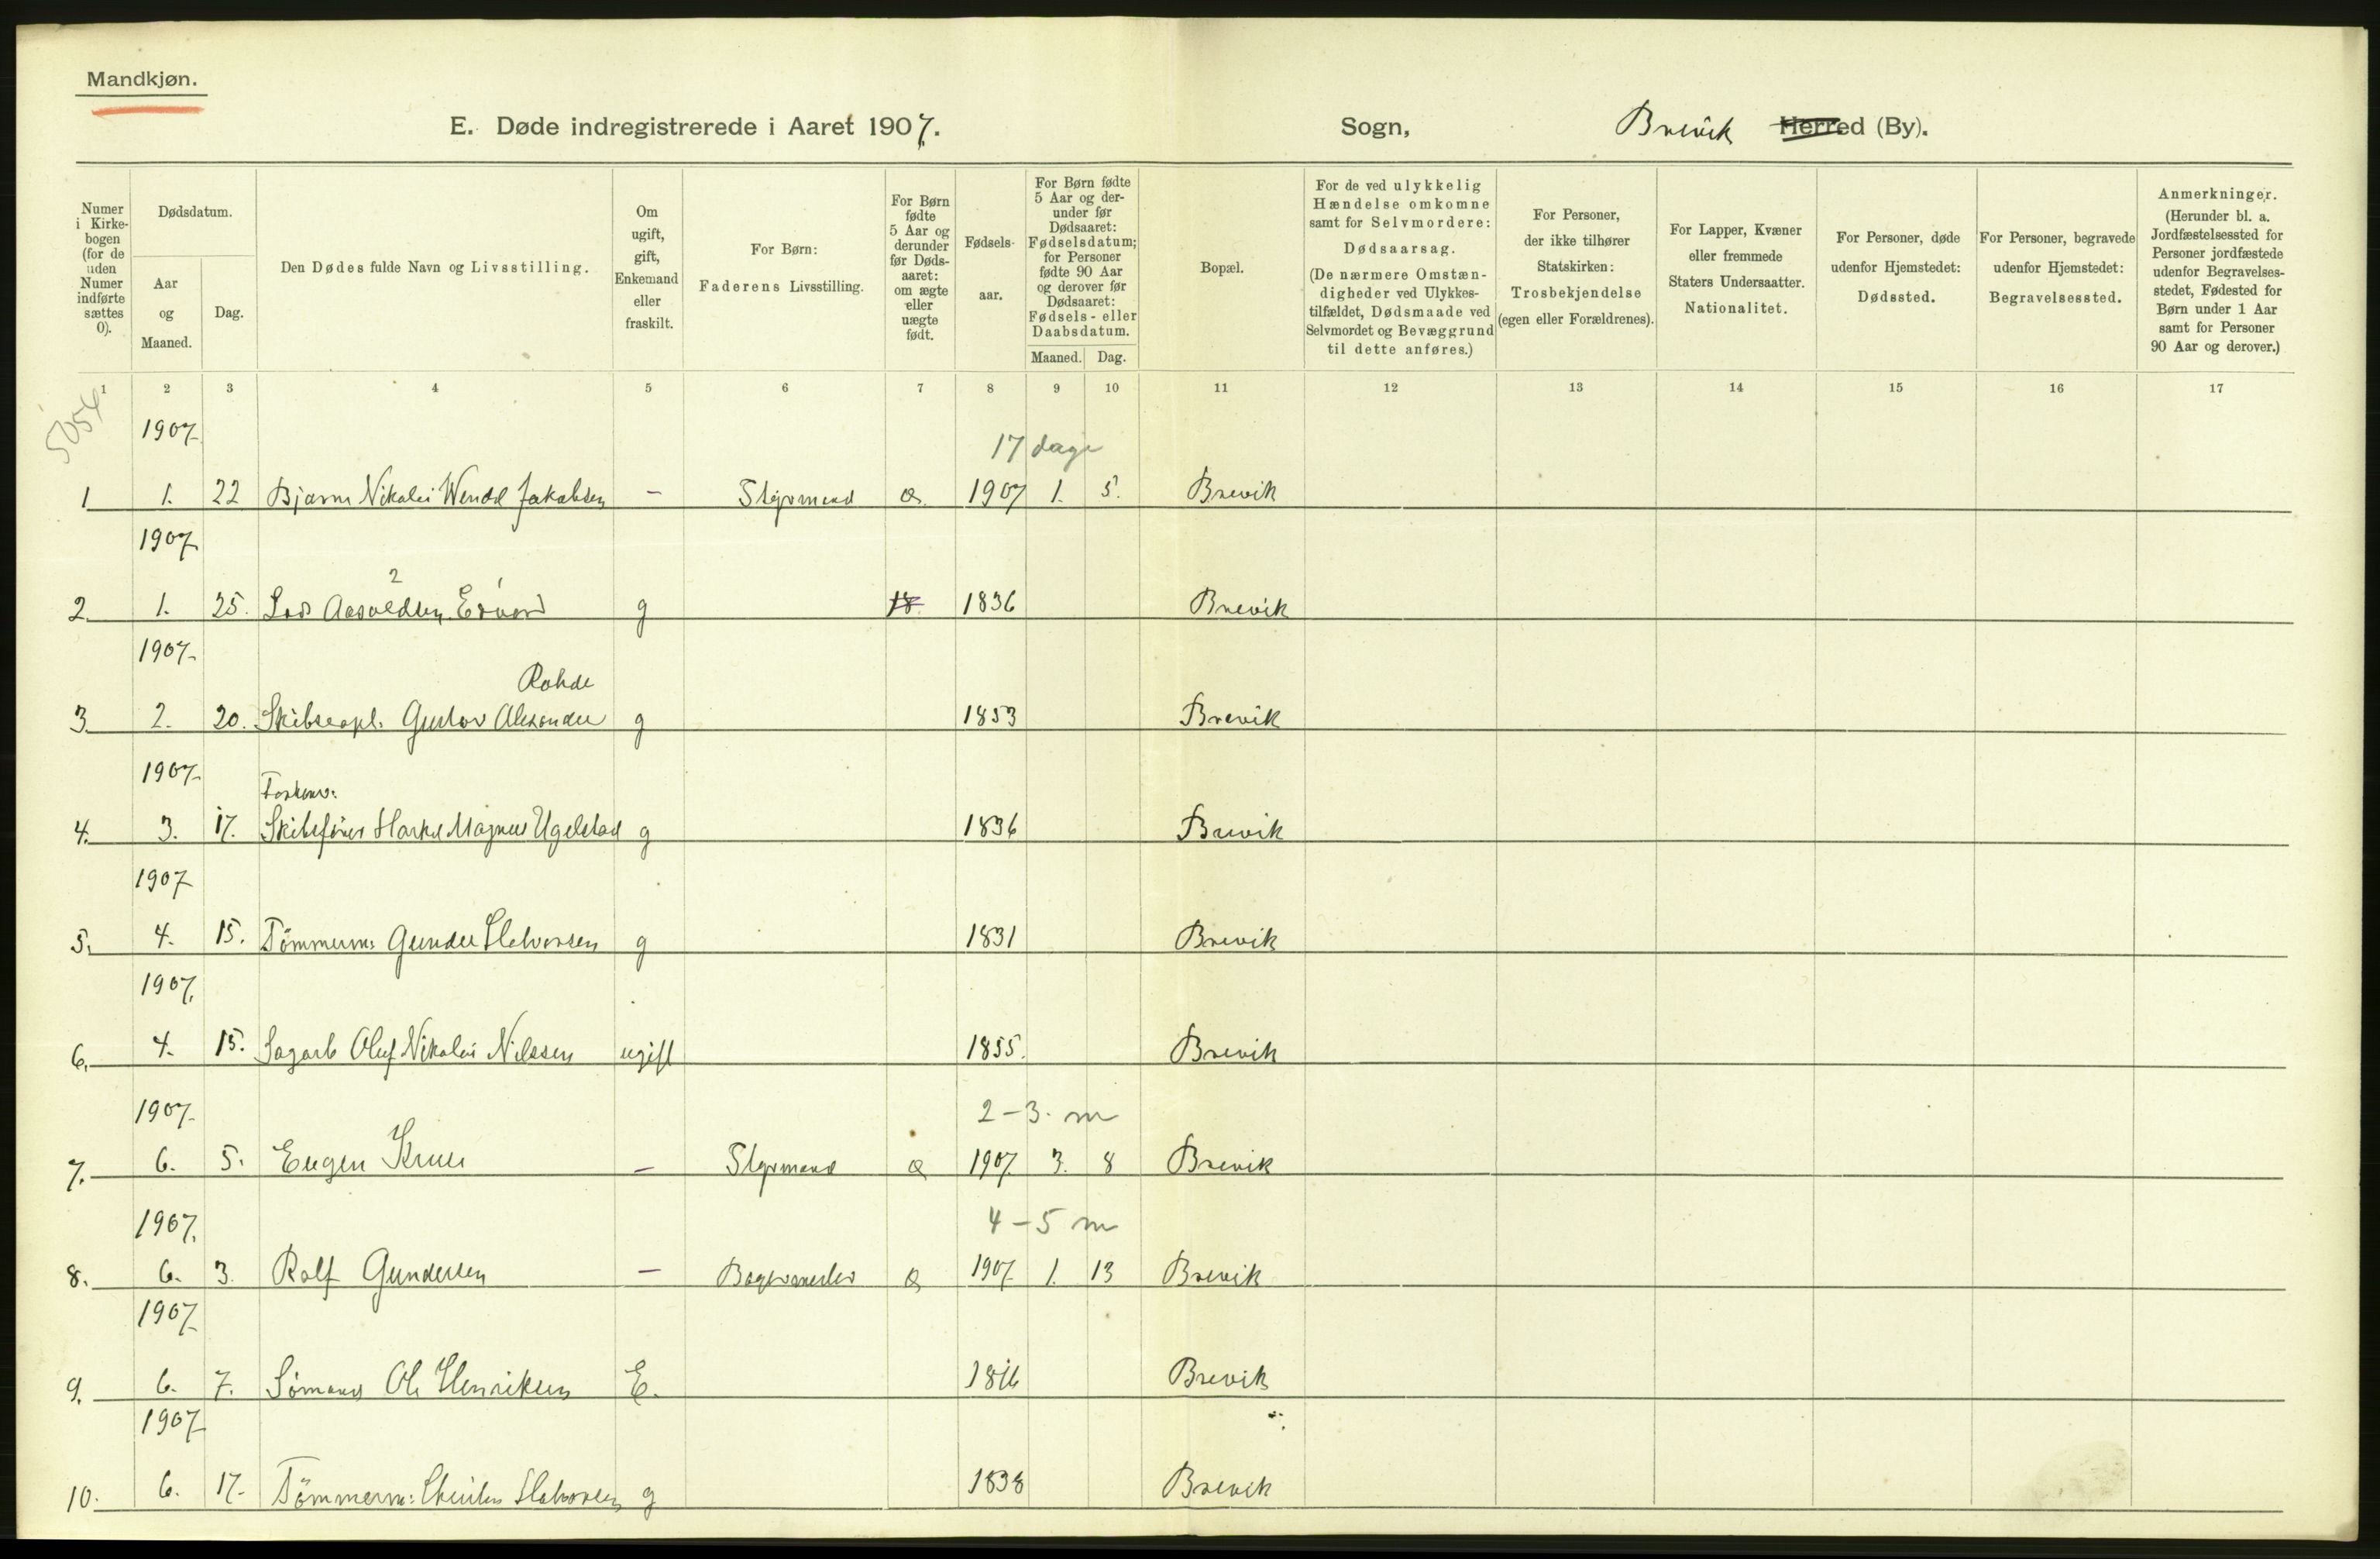 Mandkjøn.
E. Døde indregistrerede i Aaret 1907. Sogn, Brevik Herred (By).
Numer i Kirkebogen (for de uden Numer indførte sættes 0).
Dødsdatum.
Aar og Maaned.
Dag.
Den Dødes fulde Navn og Livsstilling.
Om ugift, gift, Enkemand eller fraskilt.
For Børn: Faderens Livsstilling.
For Børn fødte 5 Aar og derunder før Dødsaaret: om ægte eller uægte født.
Fødselsaar.
For Børn fødte 5 Aar og derunder før Dødsaaret: Fødselsdatum; for Personer fødte 90 Aar og derover før Dødsaaret: Fødsels- eller Daabsdatum.
Maaned. Dag.
Bopæl.
For de ved ulykkelig Hændelse omkomne samt for Selvmordere: Dødsaarsag. (De nærmere Omstændigheder ved Ulykkestilfældet, Dødsmaade ved Selvmordet og Bevæggrund til dette anføres.)
For Personer, der ikke tilhører Statskirken: Trosbekjendelse (egen eller Forældrenes).
For Lapper, Kvæner eller fremmede Staters Undersaatter. Nationalitet.
For Personer, døde udenfor Hjemstedet: Dødssted.
For Personer, begravede udenfor Hjemstedet: Begravelsessted.
Anmerkninger. (Herunder bl. a. Jordfæstelsessted for Personer jordfæstede udenfor Begravelsesstedet, Fødested for Børn under 1 Aar samt for Personer 90 Aar og derover.)
1 2 3 4 5 6 7 8 9 10 11 12 13 14 15 16 17
5054
1907 17 dage
1 1. 22 Bjarne Nikolai Wendel Jakobsen – Styrmand æ 1907 1. 5. Brevik
1907
2 1
2. 1. 25. Lods Aasoldsen Edvard g 18 1836 Brevik
1907
Rohde
3 2. 20. Skibscapt. Gustav Alexander g 1853 Brevik
1907
Forhenv:
4. 3. 17. Skibsfører Magnus Ugelstad g 1836 Brevik
1907
5. 4. 15. Tömmerm: Gunder Halvorsen g 1831 Brevik
1907.
6. 4. 15. Sagarb Oluf Nikolai Nilssen ugift 1855. Brevik
1907 2–3. m
7. 6. 5. Eugen – Styrmand æ 1907 3. 8 Brevik
1907. 4–5 m
8. 6. 3. Rolf Gundersen – Bagermester æ 1907 1. 13 Brevik
1907
9. 6. 7. Sömand Ole Henriksen E. Brevik
1907
10. 6. 17. Tömmerm: Halvorsen g 1838 Brevik